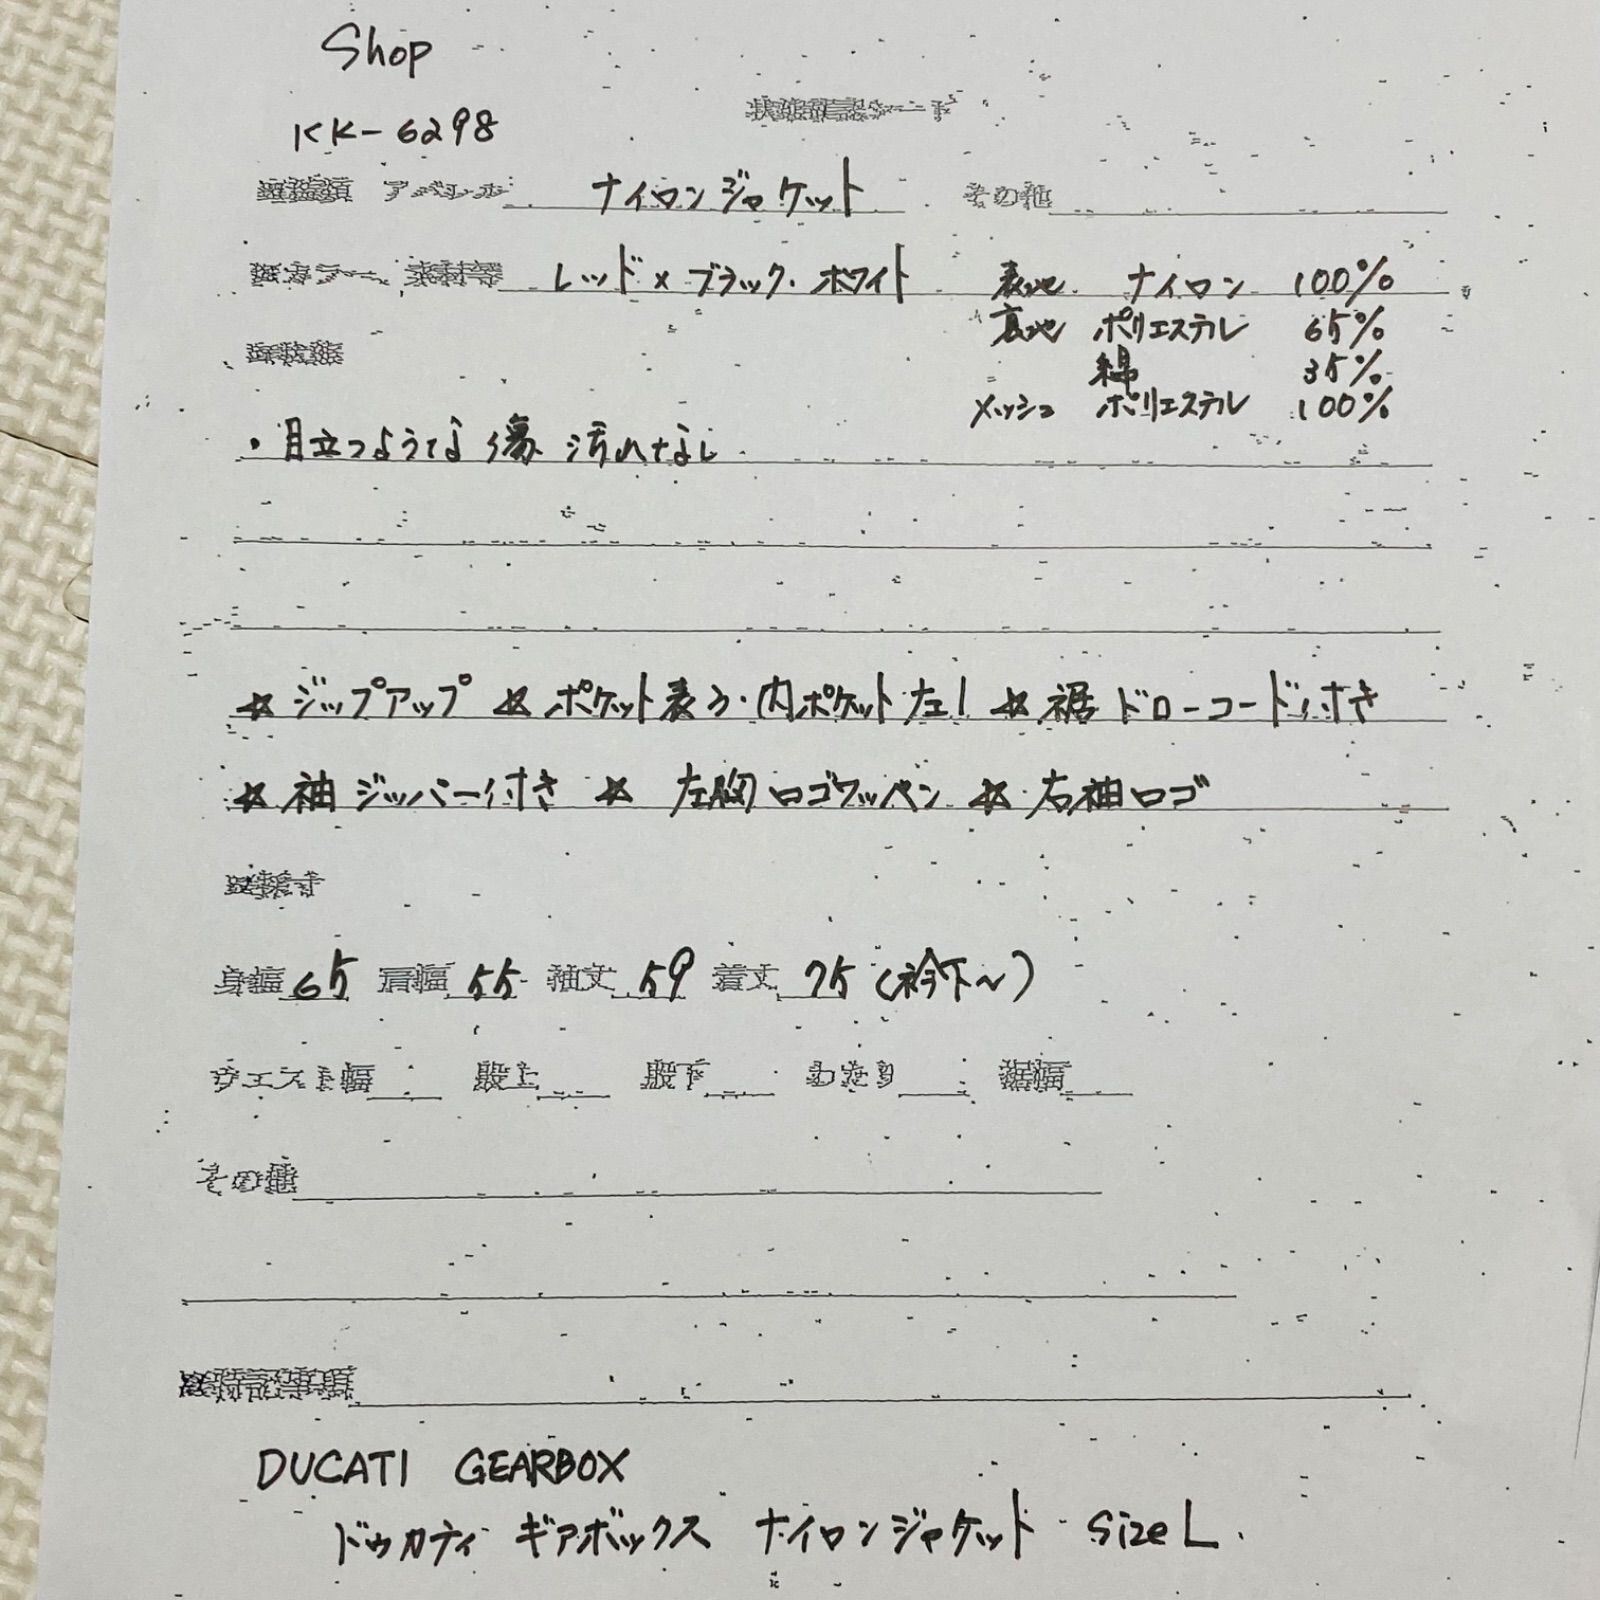 Shop
KK-6298
状態確認シート
アパレル ナイロンジャケット その他
カラー、素材等 レッド×ブラック・ホワイト 表地 ナイロン 100%
裏地 ポリエステル 65%
綿 35%
メッシュ ポリエステル 100%
・目立つような傷 汚れなし
☆ジップアップ ☆ポケット表3・内ポケット左1 ☆裾ドローコード付き
☆袖ジッパー付き ☆左胸ロゴワッペン ☆右袖ロゴ
※採寸
身幅 65 肩幅 55 袖丈 59 着丈 75(衿下~)
ウエスト幅 股上 股下 わたり 裾幅
その他
※特記事項
DUCATI GEARBOX
ドゥカティ ギアボックス ナイロンジャケット size L.